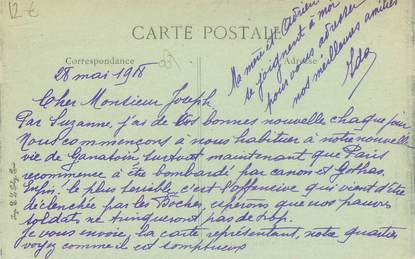 12 €
CARTE POSTALE
Correspondance
Adresse
28 mai 1918
Cher Monsieur Joseph
Par Suzanne, j'ai de bonnes nouvelle chaque jour
Nous commençons à nous habituer à notre nouvelle
vie de surtout maintenant que Paris
recommence à être bombardé par canon et Gothas.
Enfin, le plus terrible, c'est l'offensive qui vient d'être
déclenchée par les Boches, espérons que nos pauvres
soldats ne trinqueront pas de trop.
Je vous envoie, la carte représentant, notre quartier
voyez comme il est somptueux
Ma mère et Adrien
se joignent à moi
pour vous adresser
nos meilleures amitiés